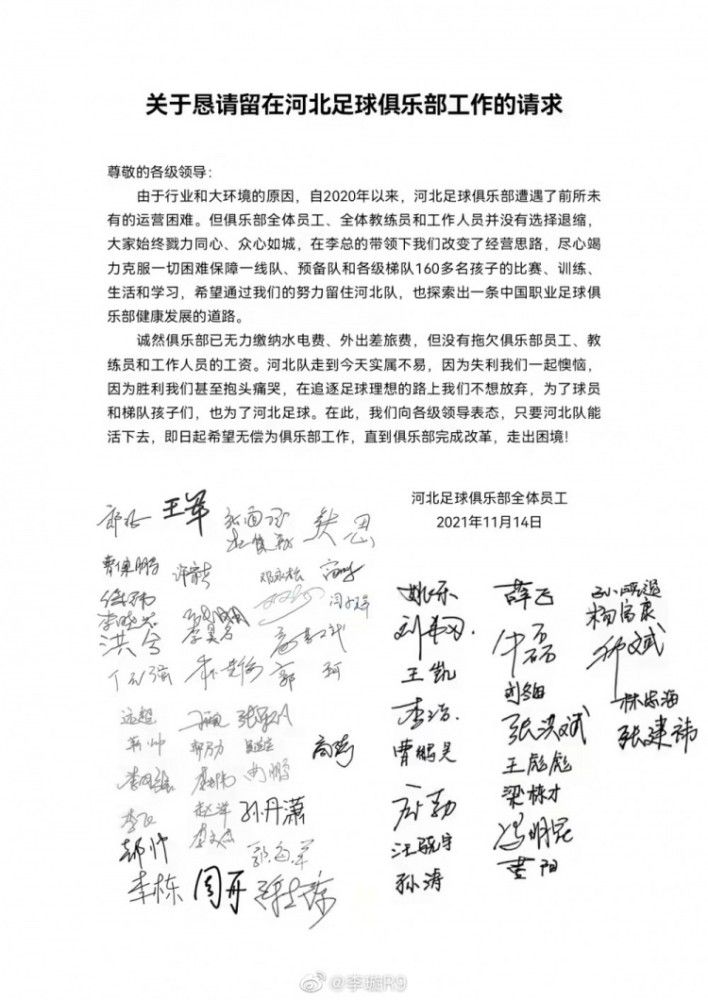 关于恳请留在河北足球俱乐部工作的请求
尊敬的各级领导：
由于行业和大环境的原因，自2020年以来，河北足球俱乐部遭遇了前所未
有的运营困难。但俱乐部全体员工、全体教练员和工作人员并没有选择退缩，
大家始终戮力同心、众心如城，在李总的带领下我们改变了经营思路，尽心竭
力克服一切困难保障一线队、预备队和各级梯队160多名孩子的比赛、训练、
生活和学习，希望通过我们的努力留住河北队，也探索出一条中国职业足球俱
乐部健康发展的道路。
诚然俱乐部已无力缴纳水电费、外出差旅费，但没有拖欠俱乐部员工、教
练员和工作人员的工资。河北队走到今天实属不易，因为失利我们一起懊恼，
因为胜利我们甚至抱头痛哭，在追逐足球理想的路上我们不想放弃，为了球员
和梯队孩子们，也为了河北足球。在此，我们向各级领导表态，只要河北队能
活下去，即日起希望无偿为俱乐部工作，直到俱乐部完成改革，走出困境！
河北足球俱乐部全体员工
2021年11月14日
王军
姚乐
薛飞
王凯
李浩
张洪斌
张建祎
曹鹏昊
王彪彪
远超
梁栋才
孙丹潇
冯明昆
汪晓宇
孙涛
郭海军
李栋
周开
@李璇R9